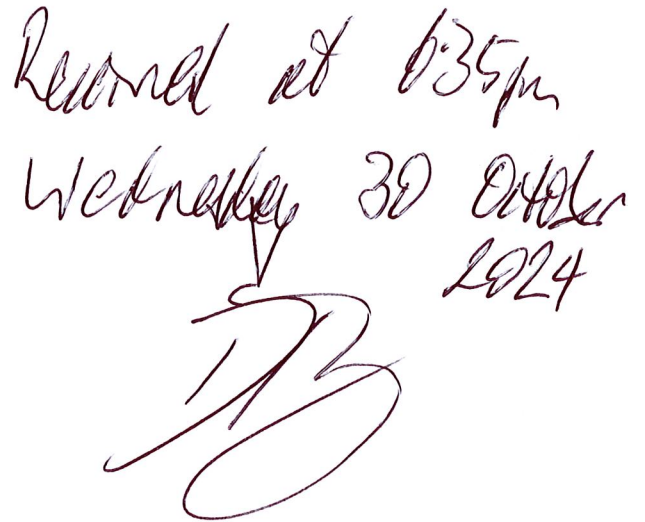 Received at 6:35pm
Wednesday 30 October
2024